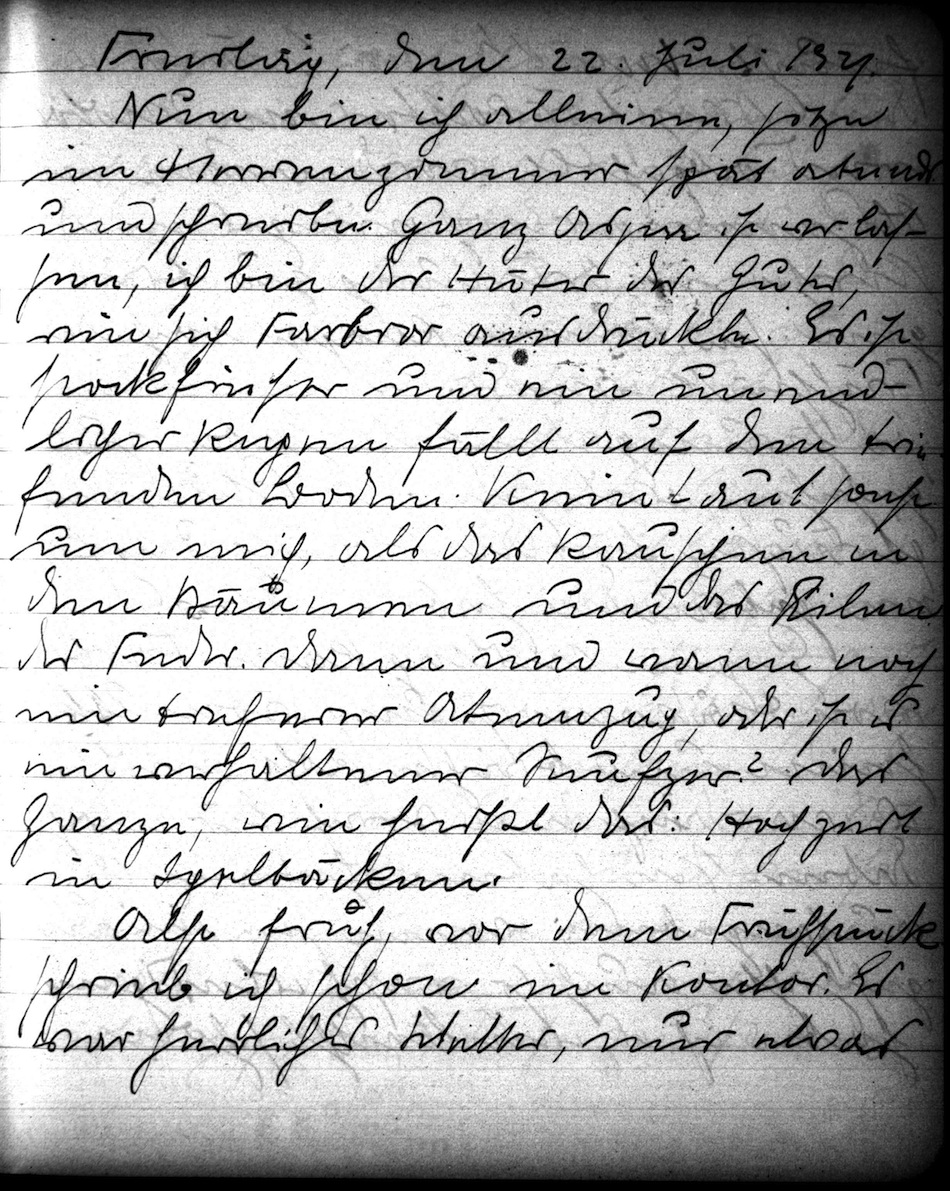 Freitag, den 22. Juli 1921.
Nun bin ich alleine, sitze
im Herrenzimmer spät abends
und schreibe. Ganz Aspen ist verlas-
sen, ich bin der Hüter des Gutes,
wie sich Farbror ausdrückte. Es ist
stockfinster und ein unend-
licher Regen fällt auf den trie-
fenden Boden. Kein Laut sonst
um mich, als das Rauschen in
den Bäumen und das Eilen
der Feder. Dann und wann noch
ein tieferer Atemzug, oder ist es
ein verhaltener Seufzer? Das
Ganze, wie heißt das: Hochzeit
in Igelbäcken.
Also früh, vor dem Frühstück
schrieb ich schon im Kontor. Es
war herrliches Wetter, nur etwas